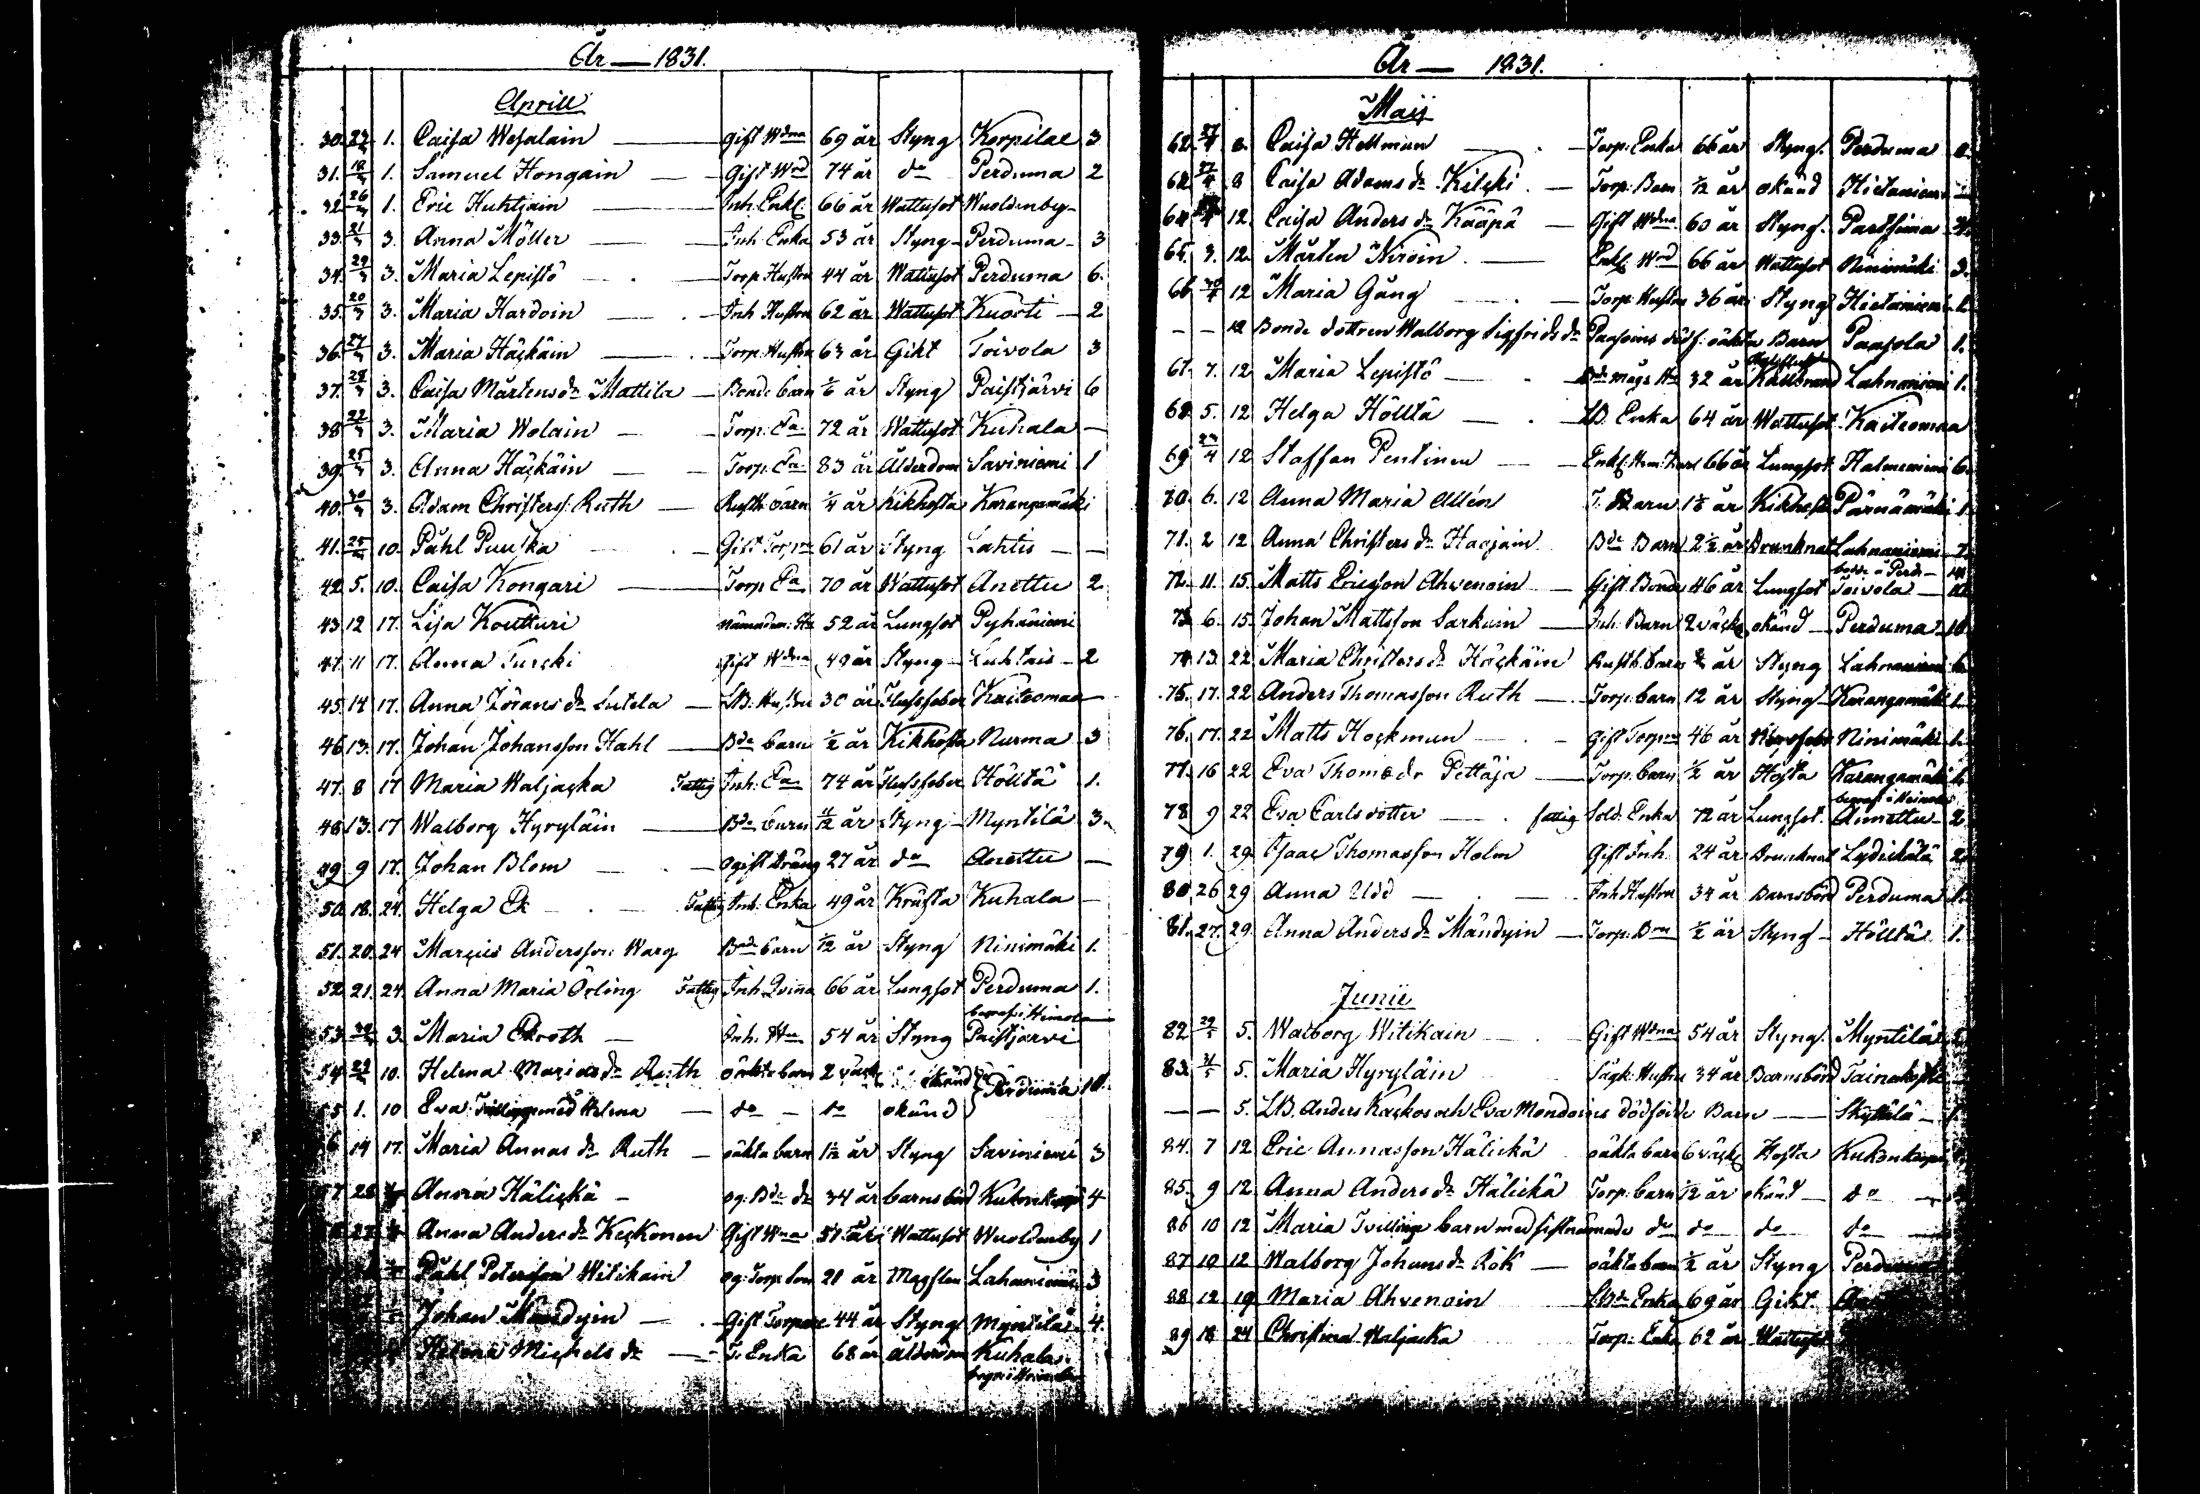 År — 1831.
Aprill
30. 23/3 1. Caisa Wesalain — Gift Wdna 69 år Styng Korpilax 3
31. 19/3 1. Samuel Hongain — Gift Wrd 74 år do Perduma 2
32. 26/3 1. Eric Huhtjain — Inh. Enkl. 66 år Wattusot Wuoldenby –
33. 21/3 3. Anna Möller — Inh. Enka 53 år Styng – Perduma – 3
34. 29/3 3. Maria Lepistö — Torp. Hustru 44 år Wattusot Perduma 6.
35. 20/3 3. Maria Kardoin — Inh Hustru 62 år Wattusot Kuorti – 2
36. 27/3 3. Maria Häskäin — Torp. Hustru 63 år Gikt Toivola 3
37. 28/3 3. Caisa Mårtensdr Mattila — Bonde barn år Styng Paistjärvi 6
38 22/3 3. Maria Wolain — Torp. Ea 72 år Wattusot Kuhala –
39. 25/3 3. Anna Häskäin — Torp. Ea 83 år Ålderdom Saviniemi 1
40. 30/3 3. Adam Christerss. Ruth — Rusth. barn 1/4 år Kikhosta Karangamäki
41. 25/3 10. Påhl Puuska — Gift Torpre 61 år Styng Lahtis – –
42 5. 10. Caisa Kongari — Torp Ea 70 år Wattusot Anettu 2
43 12 17. Lisa Koukkuri Nämndem: Ha 52 år Lungsot Pyhäniemi
44. 11 17. Anna Turski Gift Wdna 49 år Styng – Luhtais – 2
45. 14 17. Anna Jöransdr Lutela — LB. Hustru 30 år Flussfeber Kaiteomaa –
46. 13. 17. Johan Johansson Hahl — Bde barn 1/2 år Kikhosta Nurma 3
47. 8 17 Maria Waljacka Fattig Inh: Ea 74 år Flussfeber Höltta 1.
48 13. 17 Walborg Hyryläin — Bde barn 11/12 år Styng – Myntilä 3.
49 9 17. Johan Blom — ogift dräng 27 år do Anettu –
50. 18. 24. Helga Ek — Fattig Inh. Enka 49 år Kräfta Kuhala –
51. 20. 24 Marcus Andersson Warg Bde barn 1/12 år Styng Ninimäki 1.
52 21. 24. Anna Maria Örling Fattig Inh. Qvinna 66 år Lungsot Perduma 1.
53. 3. Maria Ekroth — Inh. Ha 54 år Styng Paistjärvi
54 10. Helena Mariasdr Ruth oäkta barn 2 väck okänd Perduma 10.
55 1. 10 Eva Tvilling med Helena — do – do okänd
6 14 17. Maria Annasdr Ruth — oäkta barn 1 1/2 år Styng Saviniemi 3
7 28 Anna Hälickä – og: Bde dr 34 år barnsbörd Kukonkorpi 4
27 Anna Andersdr Keskonen Gift Wdna 57 år Wattusot Wuoldenby 1
Påhl Petersson Witikain og: Torp. son 21 år Messlen Lahnaniemi 3
Johan Mändyin — Gift Torpare 44 år Styng Myntilä 4.
Helena Michelsdr — T. Enka 68 år Ålderdom Kuhala
År — 1831.
Maij
62. 27/4 8. Caisa Hellman — Torp: Enka 66 år Styng. Perduma
27/4 8 Caisa Adamsdr Kilski — Torp: Barn 1/12 år okänd Hietaniemi
64 12. Caisa Andersdr Kääpä — Gift Wdna 60 år Styng. Partsima
65. 3. 12. Mårten Niroin — Enkl. Wrd 66 år Wattusot Ninimäki 3.
66 30/4 12 Maria Gäng — Torp. Hustru 36 år Styng Hietaniemi 1.
– – 12 Bonde dottren Walborg Sigfridsdr Paasoins dödf: oäkta Barn Paasola 1.
67. 7. 12 Maria Lepistö — Bde mågs Ha 32 år Kallbrand Lahnaniemi 1.
68 5. 12 Helga Hölttä — LB. Enka 64 år Wattusot Kaiteomaa
69 29/4 12 Staffan Pentinen — 66 år Lungsot Halmeniemi 6.
70 6. 12 Anna Maria Allén T. Barn 1 1/2 år Kikhosta Pärnämäki 1.
71. 2 12 Anna Christersdr Haajain Bde Barn 2 1/2 år Drunknat Lahnaniemi 7.
72. 11. 15. Matts Ericsson Ahvenoin — Gift Bonde 46 år Lungsot Toivola –
73 6. 15. Johan Mattsson Sarkain — Inh. Barn 2 väck okänd – Perduma 10
74 13. 22 Maria Christersdr Häskäin Rusth. barn år Styng Lahnaniemi
75. 17. 22 Anders Thomasson Ruth — Torp. barn 12 år Styng Karangamäki 1.
76. 17. 22 Matts Hockman — Gift Torpre 46 år Nervfeber Ninimäki 1.
77. 16 22 Eva Thomædr Pettäja — Torp. barn 1/2 år Hosta Karangamäki
78 9 22 Eva Carlsdotter — fattig Sold. Enka 72 år Lungsot. Annettu 2
79 1. 29. Isaac Thomasson Holm Gift Inh. 24 år Drunknat Lydickälä 2
80 26 29 Anna Udd — Inh Hustru 34 år Barnsbörd Perduma 1.
81. 27. 29. Anna Andersdr Mändyin — Torp: Brn 1/2 år Styng – Hölttä 1.
Junii
82 29/5 5. Walborg Witikain — Gift Wdna 54 år Styng. Myntilä
83. 31/5 5. Maria Hyryläin Sågk. Hustru 34 år Barnsbörd Tainakoski
– – 5. LB. Anders Kackos och Eva Mondoins dödfödde Barn — Skyttälä – 1.
84. 7 12 Eric Annasson Hälickä oäkta barn 6 väck Hosta Kukonkorpi
85. 9 12 Anna Andersdr Hälickä Torp. barn 1/2 år okänd – do –
86 10 12 Maria Tvilling barn med sistnämnde do do do do
87 10 12 Walborg Johansdr Rök — oäkta barn 1/2 år Styng Perduma
88 12 19 Maria Ahvenoin LBde Enka 69 år Gikt
89 18 24 Christina Waljacka Torp: Enka 62 år Wattusot